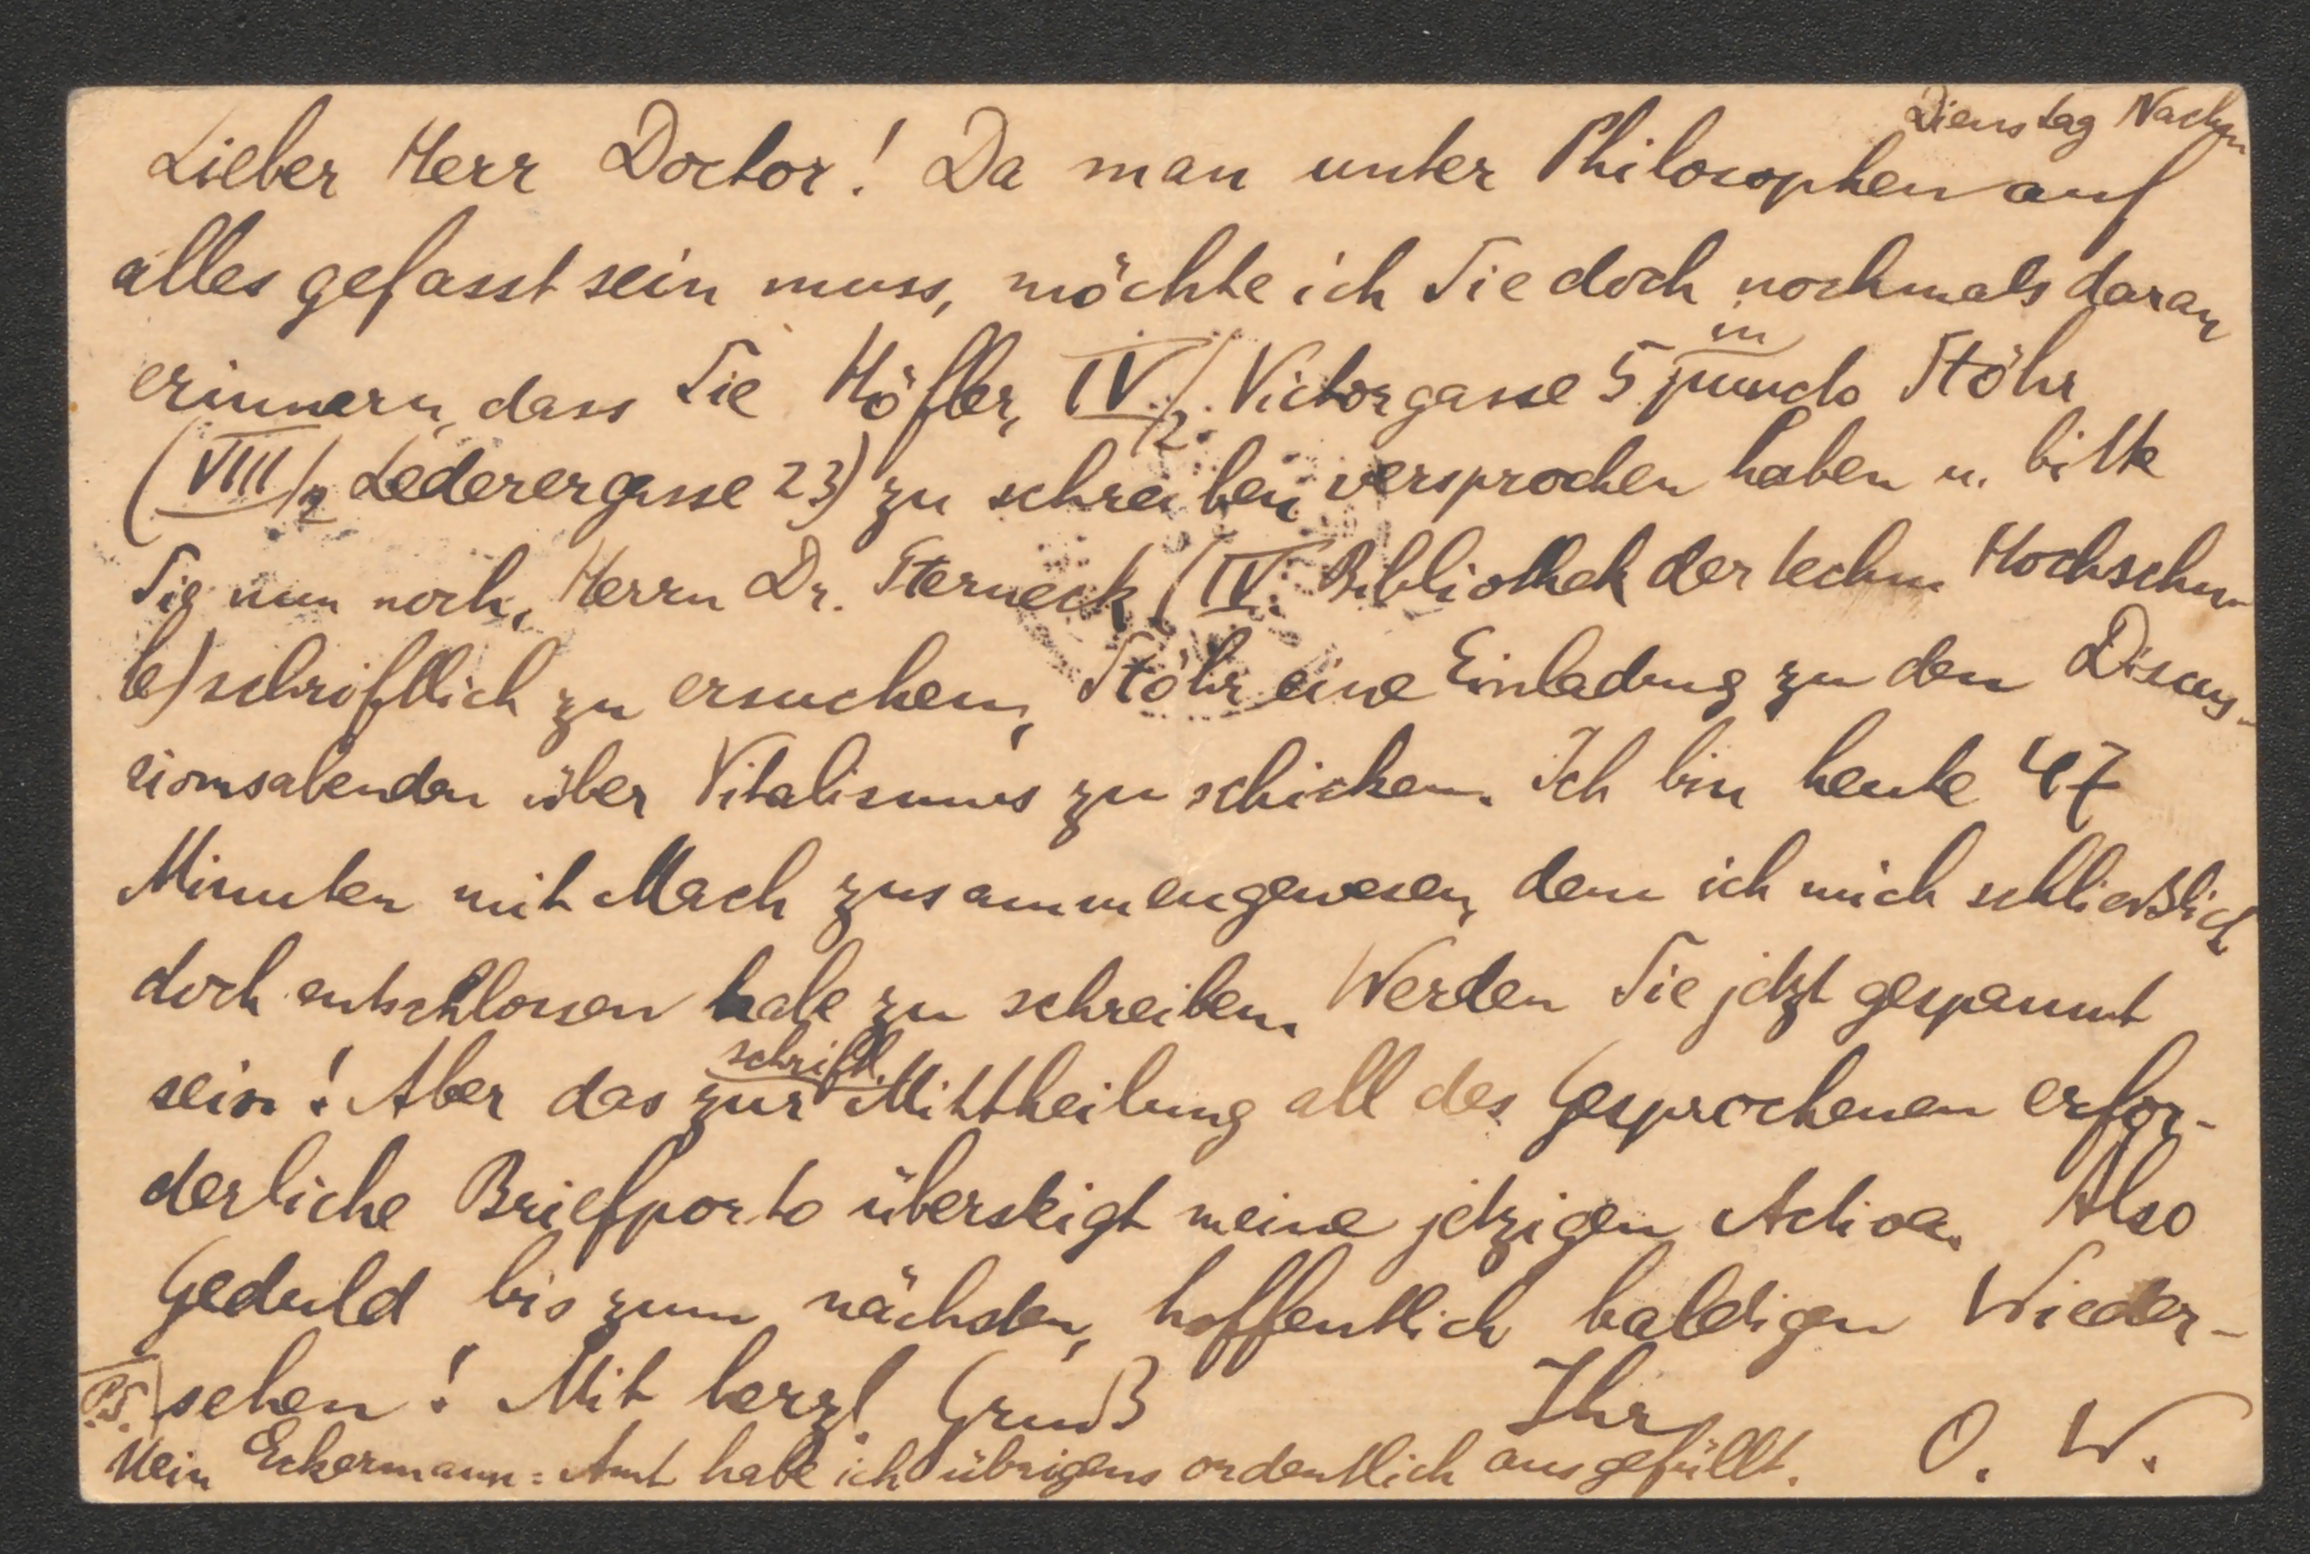 Dienstag Nachm
Lieber Herr Doctor! Da man unter Philosophen auf
alles gefasst sein muss, möchte ich Sie doch nochmals daran
erinnern, dass Sie Höfler, IV/2. Victorgasse 5 in puncto Stöhr
(VIII/2 Lederergasse 23) zu schreiben versprochen haben u. bitte
Sie nun noch, Herrn Dr. Sterneck (IV. Bibliothek der techn. Hochschu-
le) schriftlich zu ersuchen, Stöhr eine Einladung zu den Discus-
sionsabenden über Vitalismus zu schicken. Ich bin heute 47
Minuten mit Mach zusammengewesen, dem ich mich schließlich
doch entschlossen habe zu schreiben. Werden Sie jetzt gespannt
sein! Aber das zur schriftl. Mittheilung all des Gesprochenen erfor-
derliche Briefporto übersteigt meine jetzigen Activa. Also
Geduld bis zum nächsten, hoffentlich baldigen Wieder-
sehen! Mit herzl. Gruß Ihr
O. W.
P.S.
Mein Eckermann-Amt habe ich übrigens ordentlich ausgefüllt.